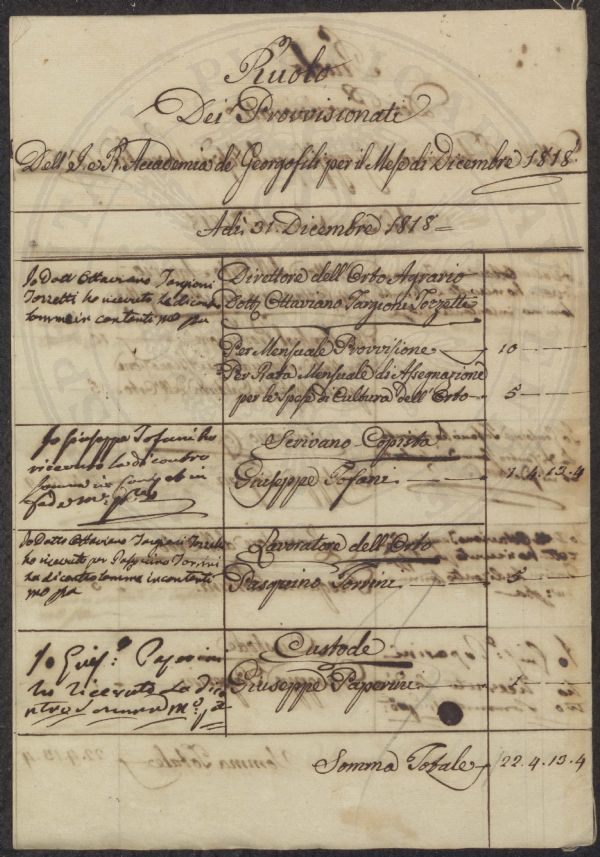 Ruolo
Dei Provvisionati
Dell'I. e R. Accademia de Georgofili per il Mese di Dicembre 1818.
Adì 31. Dicembre 1818.
Io Dott Ottaviano Targioni
Tozzetti ho ricevuto la di contro
somma in contanti mo ppa
Direttore dell'Orto Agrario
Dott. Ottaviano Targioni Tozzetti
Per Mensuale Provvisione 10
Per Rata Mensuale di Assegnazione
per le Spese di Cultura dell'Orto 5
Io Giuseppe Tofani ho
ricevuto la di contro
somma in
fede
Scrivano Copista
Giuseppe Tofani 1.4.13.4
Io Dotto Ottaviano Targioni Tozzetti
ho ricevuto per Pasquino Tonini
la di contro somma in contanti
mo ppa
Lavoratore dell'Orto
Pasquino Tonini 5
Io Gius.e Paperini
ho ricevuto la di co
ntro Somma
Custode
Giuseppe Paperini 1
Somma Totale 22.4.13.4